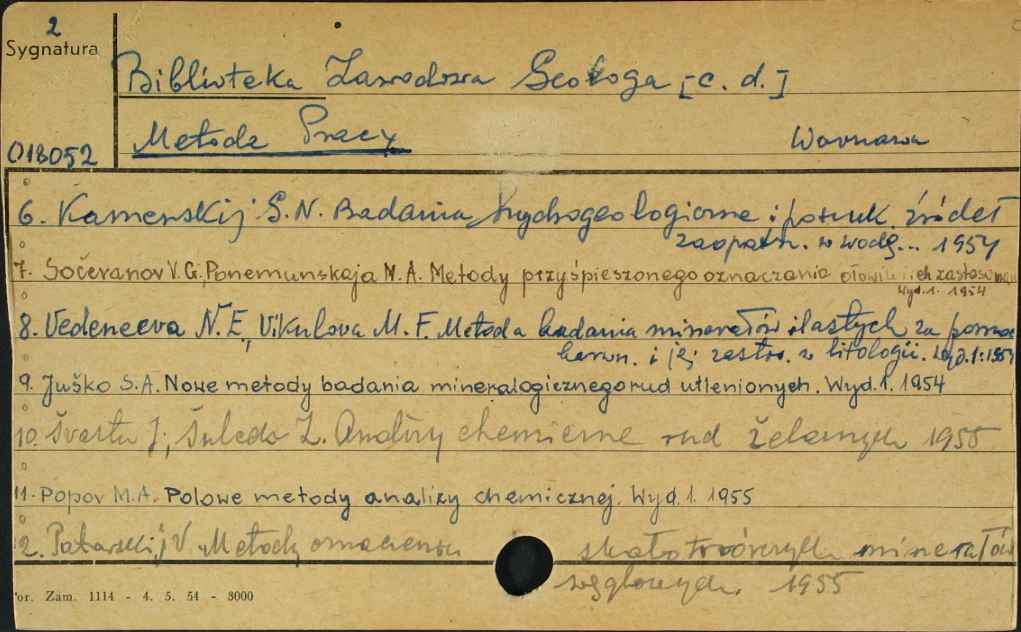 2
Sygnatura
Biblioteka Zawodowa Geologa [c. d.]
Metoda Pracy Warszawa
018052
6. Kamenskij G.N. Badania hydrogeologiczne i poszuk. źródeł
zaopatr. w wodę... 1954
7. Sočevanov V.G., Ponemunskaja N.A. Metody przyśpieszonego oznaczania ołowiu i ich zastosowan
Wyd. 1. 1954
8. Vedeneeva N.E., Vikulova M.F. Metoda badania minerałów ilastych za pomoc
barwn. i jej zastos. w litologii. Wyd. 1. 1954
9. Juško S.A. Nowe metody badania mineralogicznego rud utlenionych. Wyd. 1. 1954
10. Švarta J., Šulcda Z. Analizy chemiczne rud żelaznych 1955
11. Popov M.A. Polowe metody analizy chemicznej. Wyd. 1. 1955
12. Tatarskij V. Metody oznaczenia skałotwórczych minerałów
węglowych. 1955
or. Zam. 1114 - 4. 5. 54 - 8000